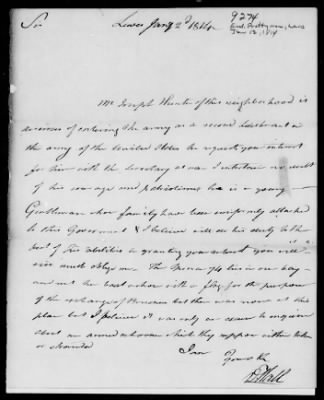 Sir Lewes Jany 2d 1814
9274
Jan 12, 1814
Mr Joseph Hunter of this neighborhood is
anxious of entering the army as a second Lieutenant in
the army of the United States he requests your interest
for him with the Secretary at war I entertain no doubt
of his courage and patriotism he is a young
Gentleman whose family have been uniformly attached
to this Government & I believe will do his duty to the
best of his abilities in granting your interest you will
very much oblige me. The 74 lies in our bay
and sent her boat ashore with a flag for the purpose
of the exchange of Prisoners but there was none at this
place but I believe it was only an excuse to enquire
about an armed schooner which they suppose either taken
or stranded
I am
Yours &c
D Hall